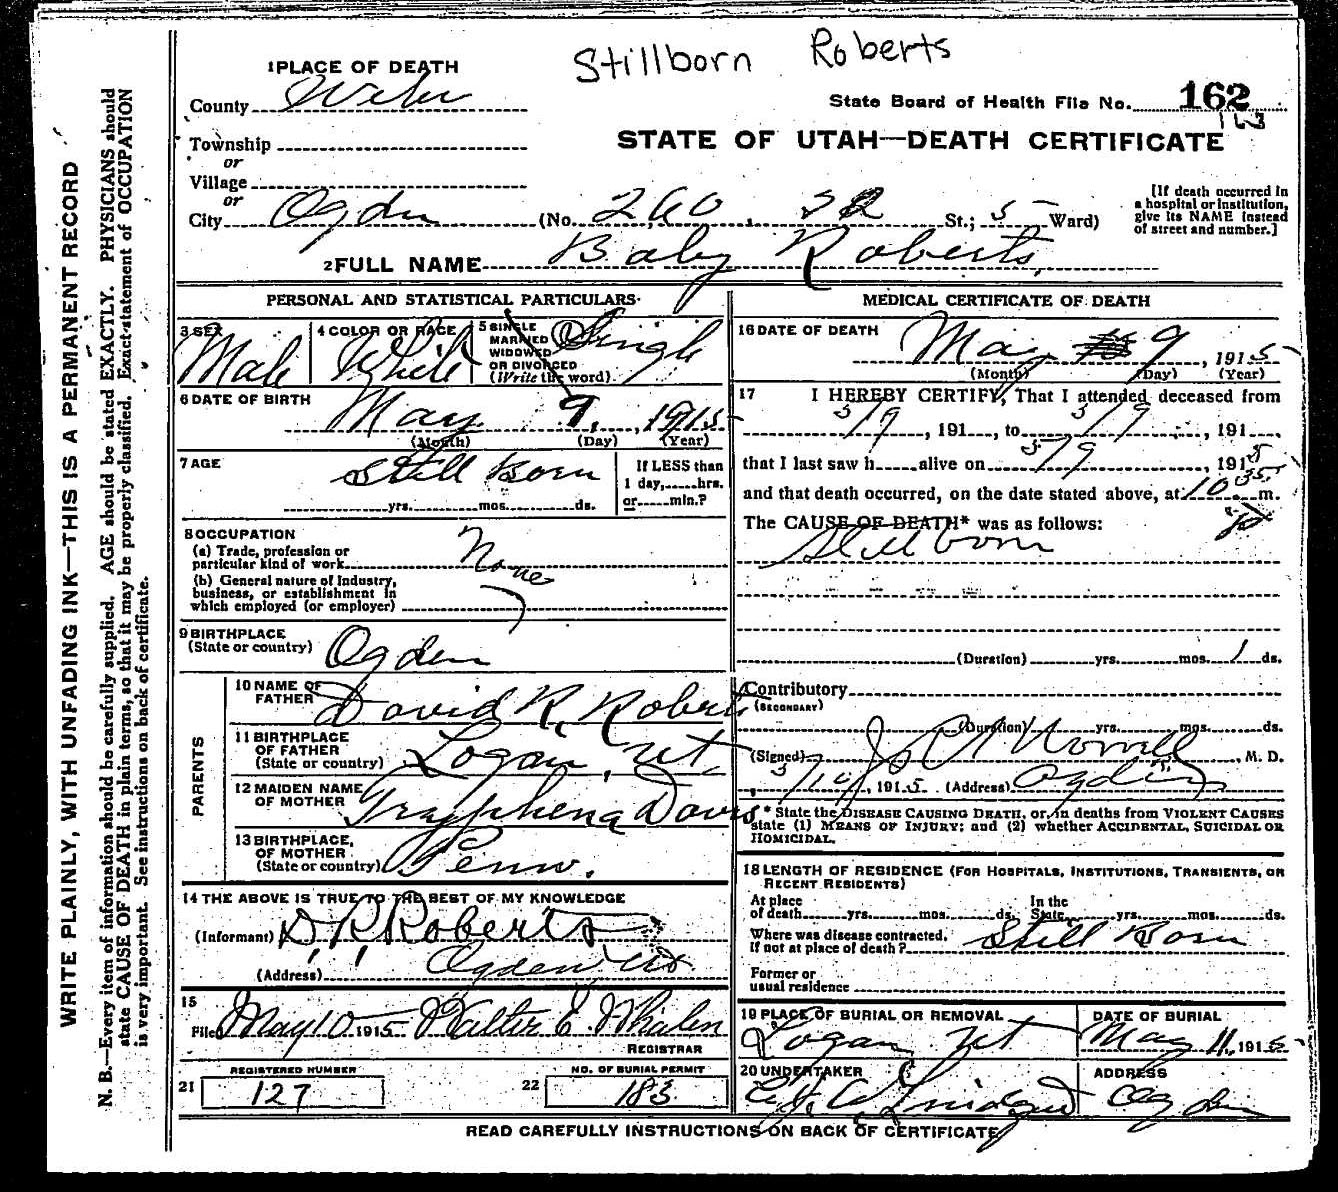 Stillborn Roberts
1 PLACE OF DEATH
County Weber
State Board of Health File No. 162
Township
or
Village
or
City Ogden (No. 260, 32 St.; 5 Ward)
STATE OF UTAH—DEATH CERTIFICATE
[If death occurred in
a hospital or institution,
give its NAME instead
of street and number.]
2 FULL NAME Baby Roberts
PERSONAL AND STATISTICAL PARTICULARS
3 SEX Male
4 COLOR OR RACE White
5 SINGLE
MARRIED
WIDOWED
OR DIVORCED
(Write the word). Single
6 DATE OF BIRTH
May 9, 1915
(Month) (Day) (Year)
7 AGE Still Born
yrs. mos. ds.
If LESS than
1 day, hrs.
or min.?
8 OCCUPATION
(a) Trade, profession or
particular kind of work None
(b) General nature of industry,
business, or establishment in
which employed (or employer)
9 BIRTHPLACE
(State or country) Ogden
PARENTS
10 NAME OF
FATHER David R. Roberts
11 BIRTHPLACE
OF FATHER
(State or country) Logan, Ut.
12 MAIDEN NAME
OF MOTHER Tryphena Davis
13 BIRTHPLACE,
OF MOTHER
(State or country) Penn.
14 THE ABOVE IS TRUE TO THE BEST OF MY KNOWLEDGE
(Informant) D. R. Roberts
(Address) Ogden Ut
15
Filed May 10 1915 Walter E. Whalen
REGISTRAR
21 REGISTERED NUMBER
127
22 NO. OF BURIAL PERMIT
183
MEDICAL CERTIFICATE OF DEATH
16 DATE OF DEATH
May 9, 1915
(Month) (Day) (Year)
17 I HEREBY CERTIFY, That I attended deceased from
5/9, 191, to 5/9, 191,
that I last saw h alive on 5/9, 1915
and that death occurred, on the date stated above, at 10 35 m.
The CAUSE OF DEATH* was as follows:
Stillborn
(Duration) yrs. mos. 1 ds.
Contributory
(SECONDARY)
(Duration) yrs. mos. ds.
(Signed) M. D.
5/10, 1915 (Address) Ogden
* State the DISEASE CAUSING DEATH, or, in deaths from VIOLENT CAUSES
state (1) MEANS OF INJURY; and (2) whether ACCIDENTAL, SUICIDAL OR
HOMICIDAL.
18 LENGTH OF RESIDENCE (FOR HOSPITALS, INSTITUTIONS, TRANSIENTS, OR
RECENT RESIDENTS)
At place
of death yrs. mos. ds.
In the
State yrs. mos. ds.
Where was disease contracted,
if not at place of death? Still Born
Former or
usual residence
19 PLACE OF BURIAL OR REMOVAL
Logan Ut
DATE OF BURIAL
May 11, 1915
20 UNDERTAKER
ADDRESS
Ogden
READ CAREFULLY INSTRUCTIONS ON BACK OF CERTIFICATE
WRITE PLAINLY, WITH UNFADING INK—THIS IS A PERMANENT RECORD
N. B.—Every item of information should be carefully supplied. AGE should be stated EXACTLY. PHYSICIANS should
state CAUSE OF DEATH in plain terms, so that it may be properly classified. Exact statement of OCCUPATION
is very important. See instructions on back of certificate.